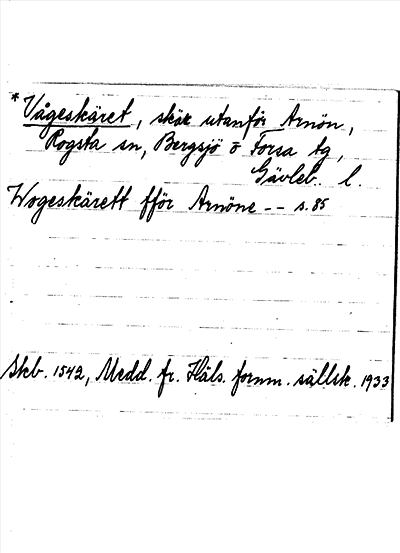 * Vågeskäret, skär utanför Arnön,
Rogsta sn, Bergsjö o Forsa tg,
Gävleb. l.
Wogeskärett fför Arnöne -- s. 85
Skb. 1542, Medd. fr. Häls. fornm. sällsk. 1933